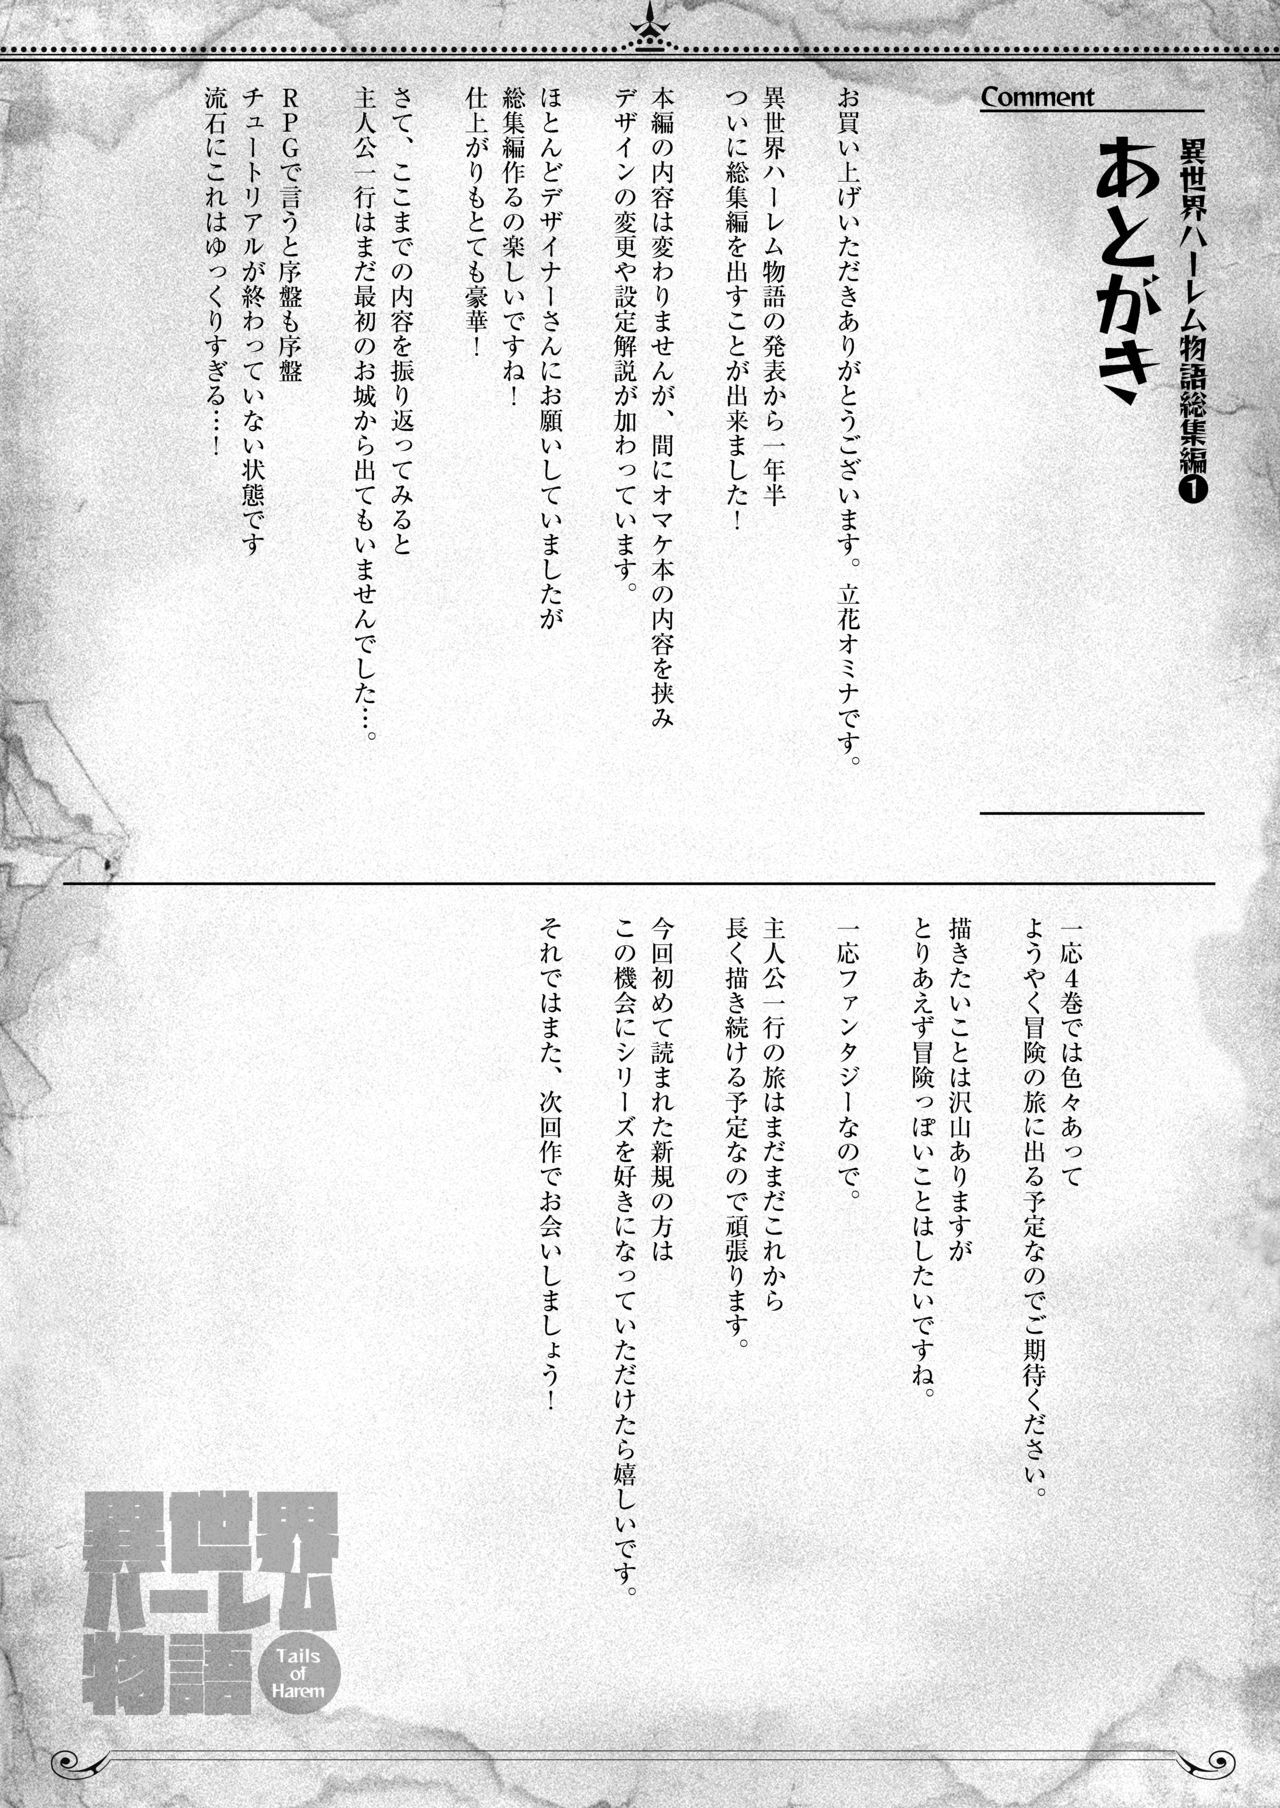 Comment
異世界ハーレム物語総集編❶
あとがき
お買い上げいただきありがとうございます。立花オミナです。
異世界ハーレム物語の発表から一年半
ついに総集編を出すことが出来ました！
本編の内容は変わりませんが、間にオマケ本の内容を挟み
デザインの変更や設定解説が加わっています。
ほとんどデザイナーさんにお願いしていましたが
総集編作るの楽しいですね！
仕上がりもとても豪華！
さて、ここまでの内容を振り返ってみると
主人公一行はまだ最初のお城から出てもいませんでした…。
RPGで言うと序盤も序盤
チュートリアルが終わっていない状態です
流石にこれはゆっくりすぎる…！
一応4巻では色々あって
ようやく冒険の旅に出る予定なのでご期待ください。
描きたいことは沢山ありますが
とりあえず冒険っぽいことはしたいですね。
一応ファンタジーなので。
主人公一行の旅はまだまだこれから
長く描き続ける予定なので頑張ります。
今回初めて読まれた新規の方は
この機会にシリーズを好きになっていただけたら嬉しいです。
それではまた、次回作でお会いしましょう！
異世界
ハーレム
物語
Tails
of
Harem